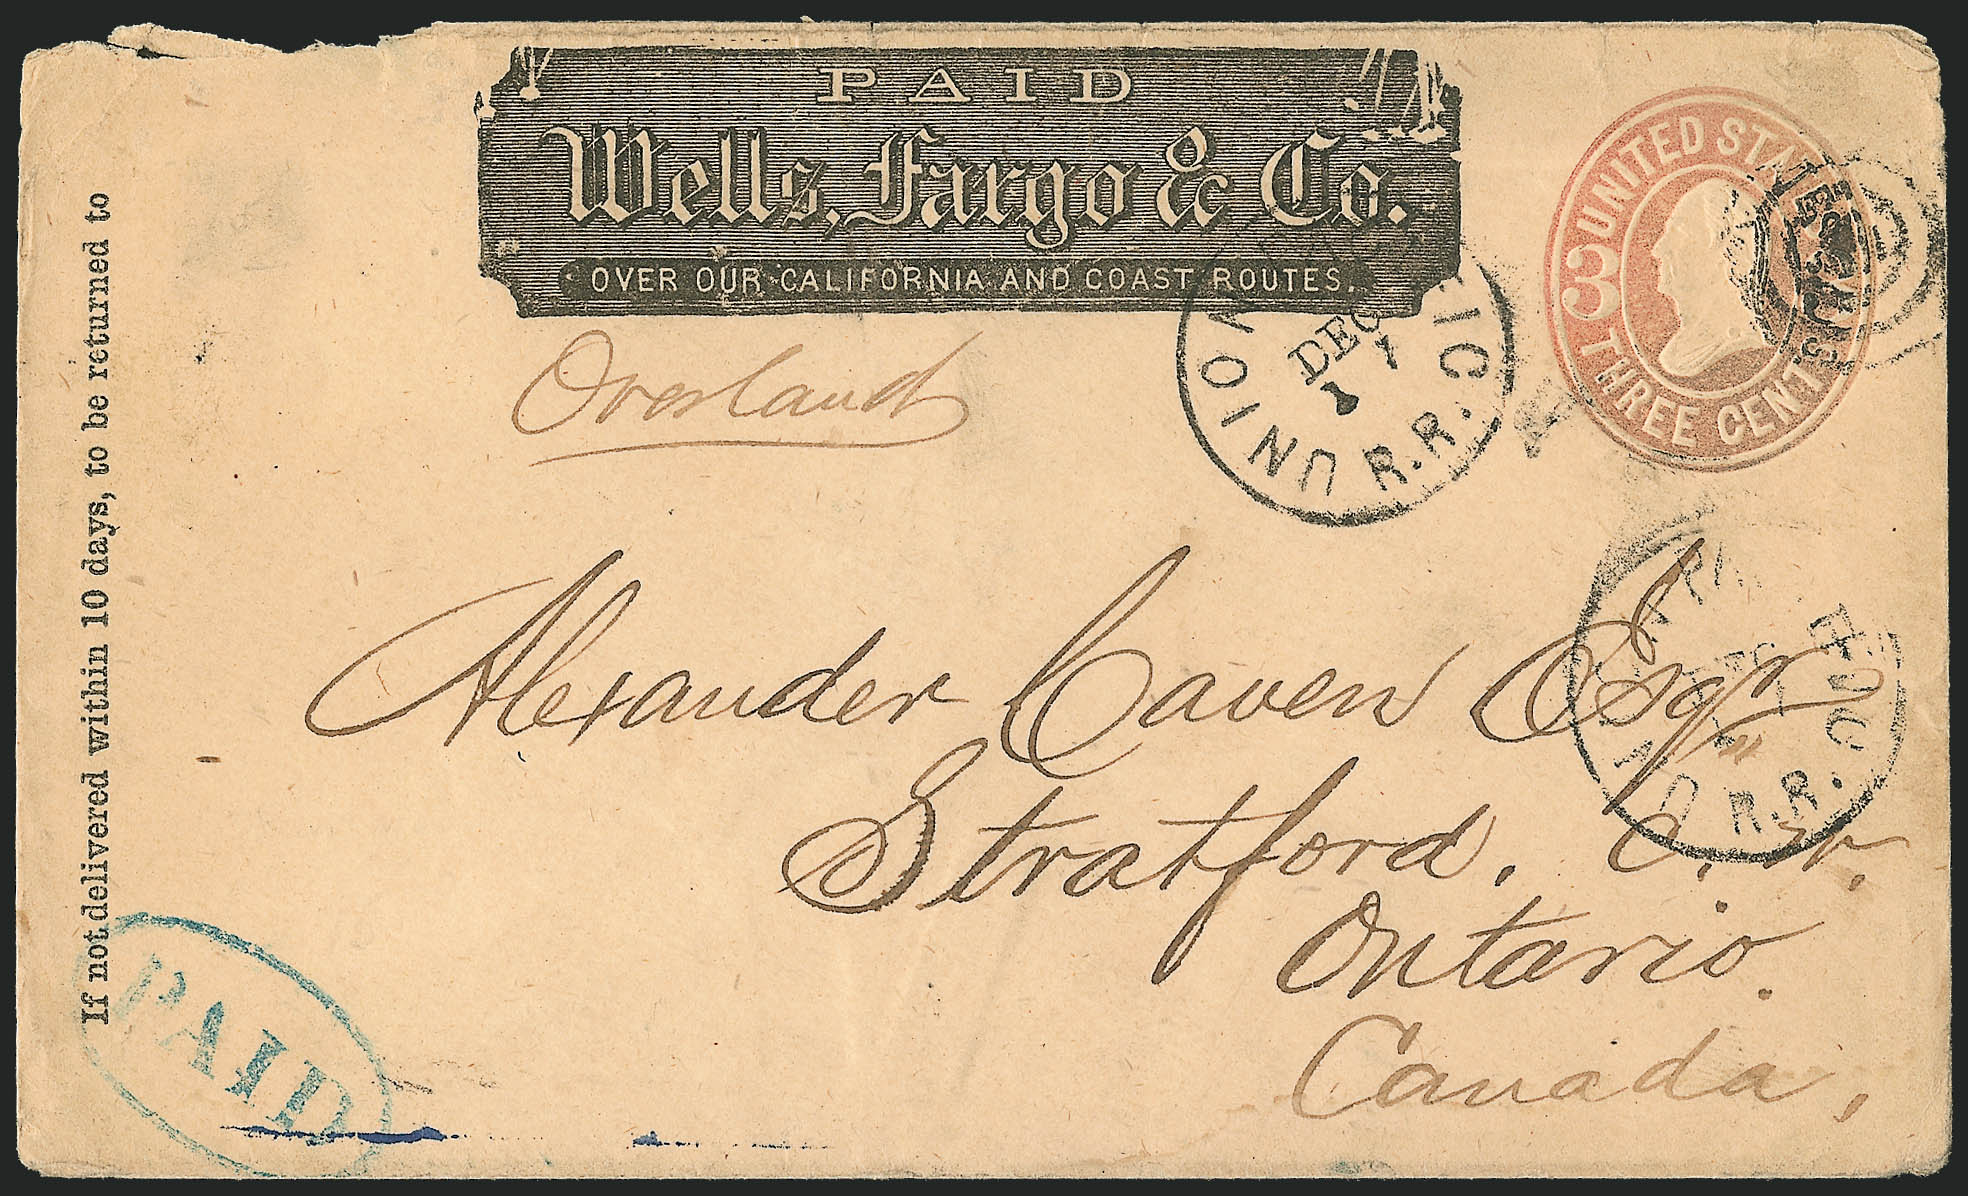 PAID
Wells, Fargo & Co.
OVER OUR CALIFORNIA AND COAST ROUTES.
UNITED STATES
3
THREE CENTS
Overland
UNION
DEC
1
R.R.
Alexander Caven Esqr
Stratford. C. W.
Ontario.
Canada,
R.R.
If not delivered within 10 days, to be returned to
PAID